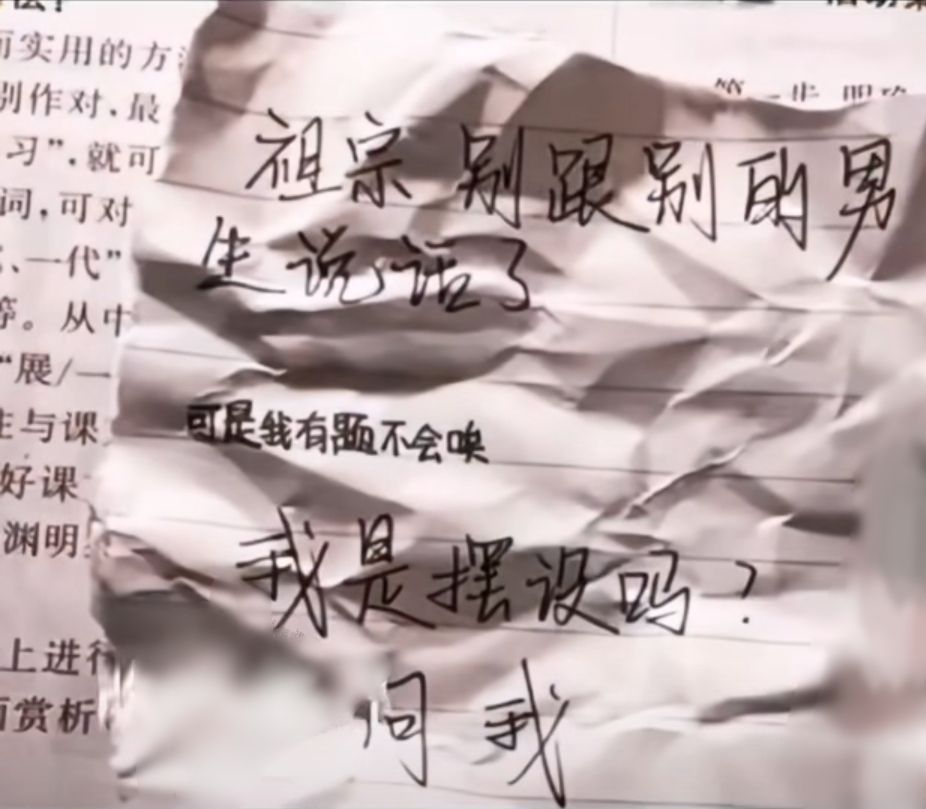 而实用的方
别作对，最
习”，就可
词，可对
、一代”
等。从中
“展/一
生与课
好课
渊明
上进行
而赏析
祖宗 别跟别的男
生说话了
可是我有题不会唉
我是摆设吗？
问我